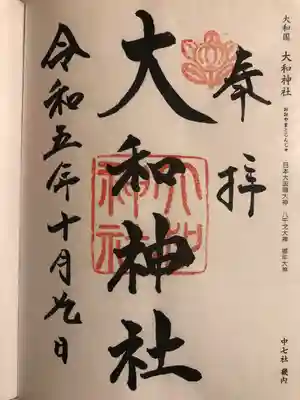 大和国 大和神社
おおやまとじんじゃ
日本大国魂大神 八千戈大神 御年大神
中七社 畿内
奉拝
大和神社
大和神社
令和五年十月九日